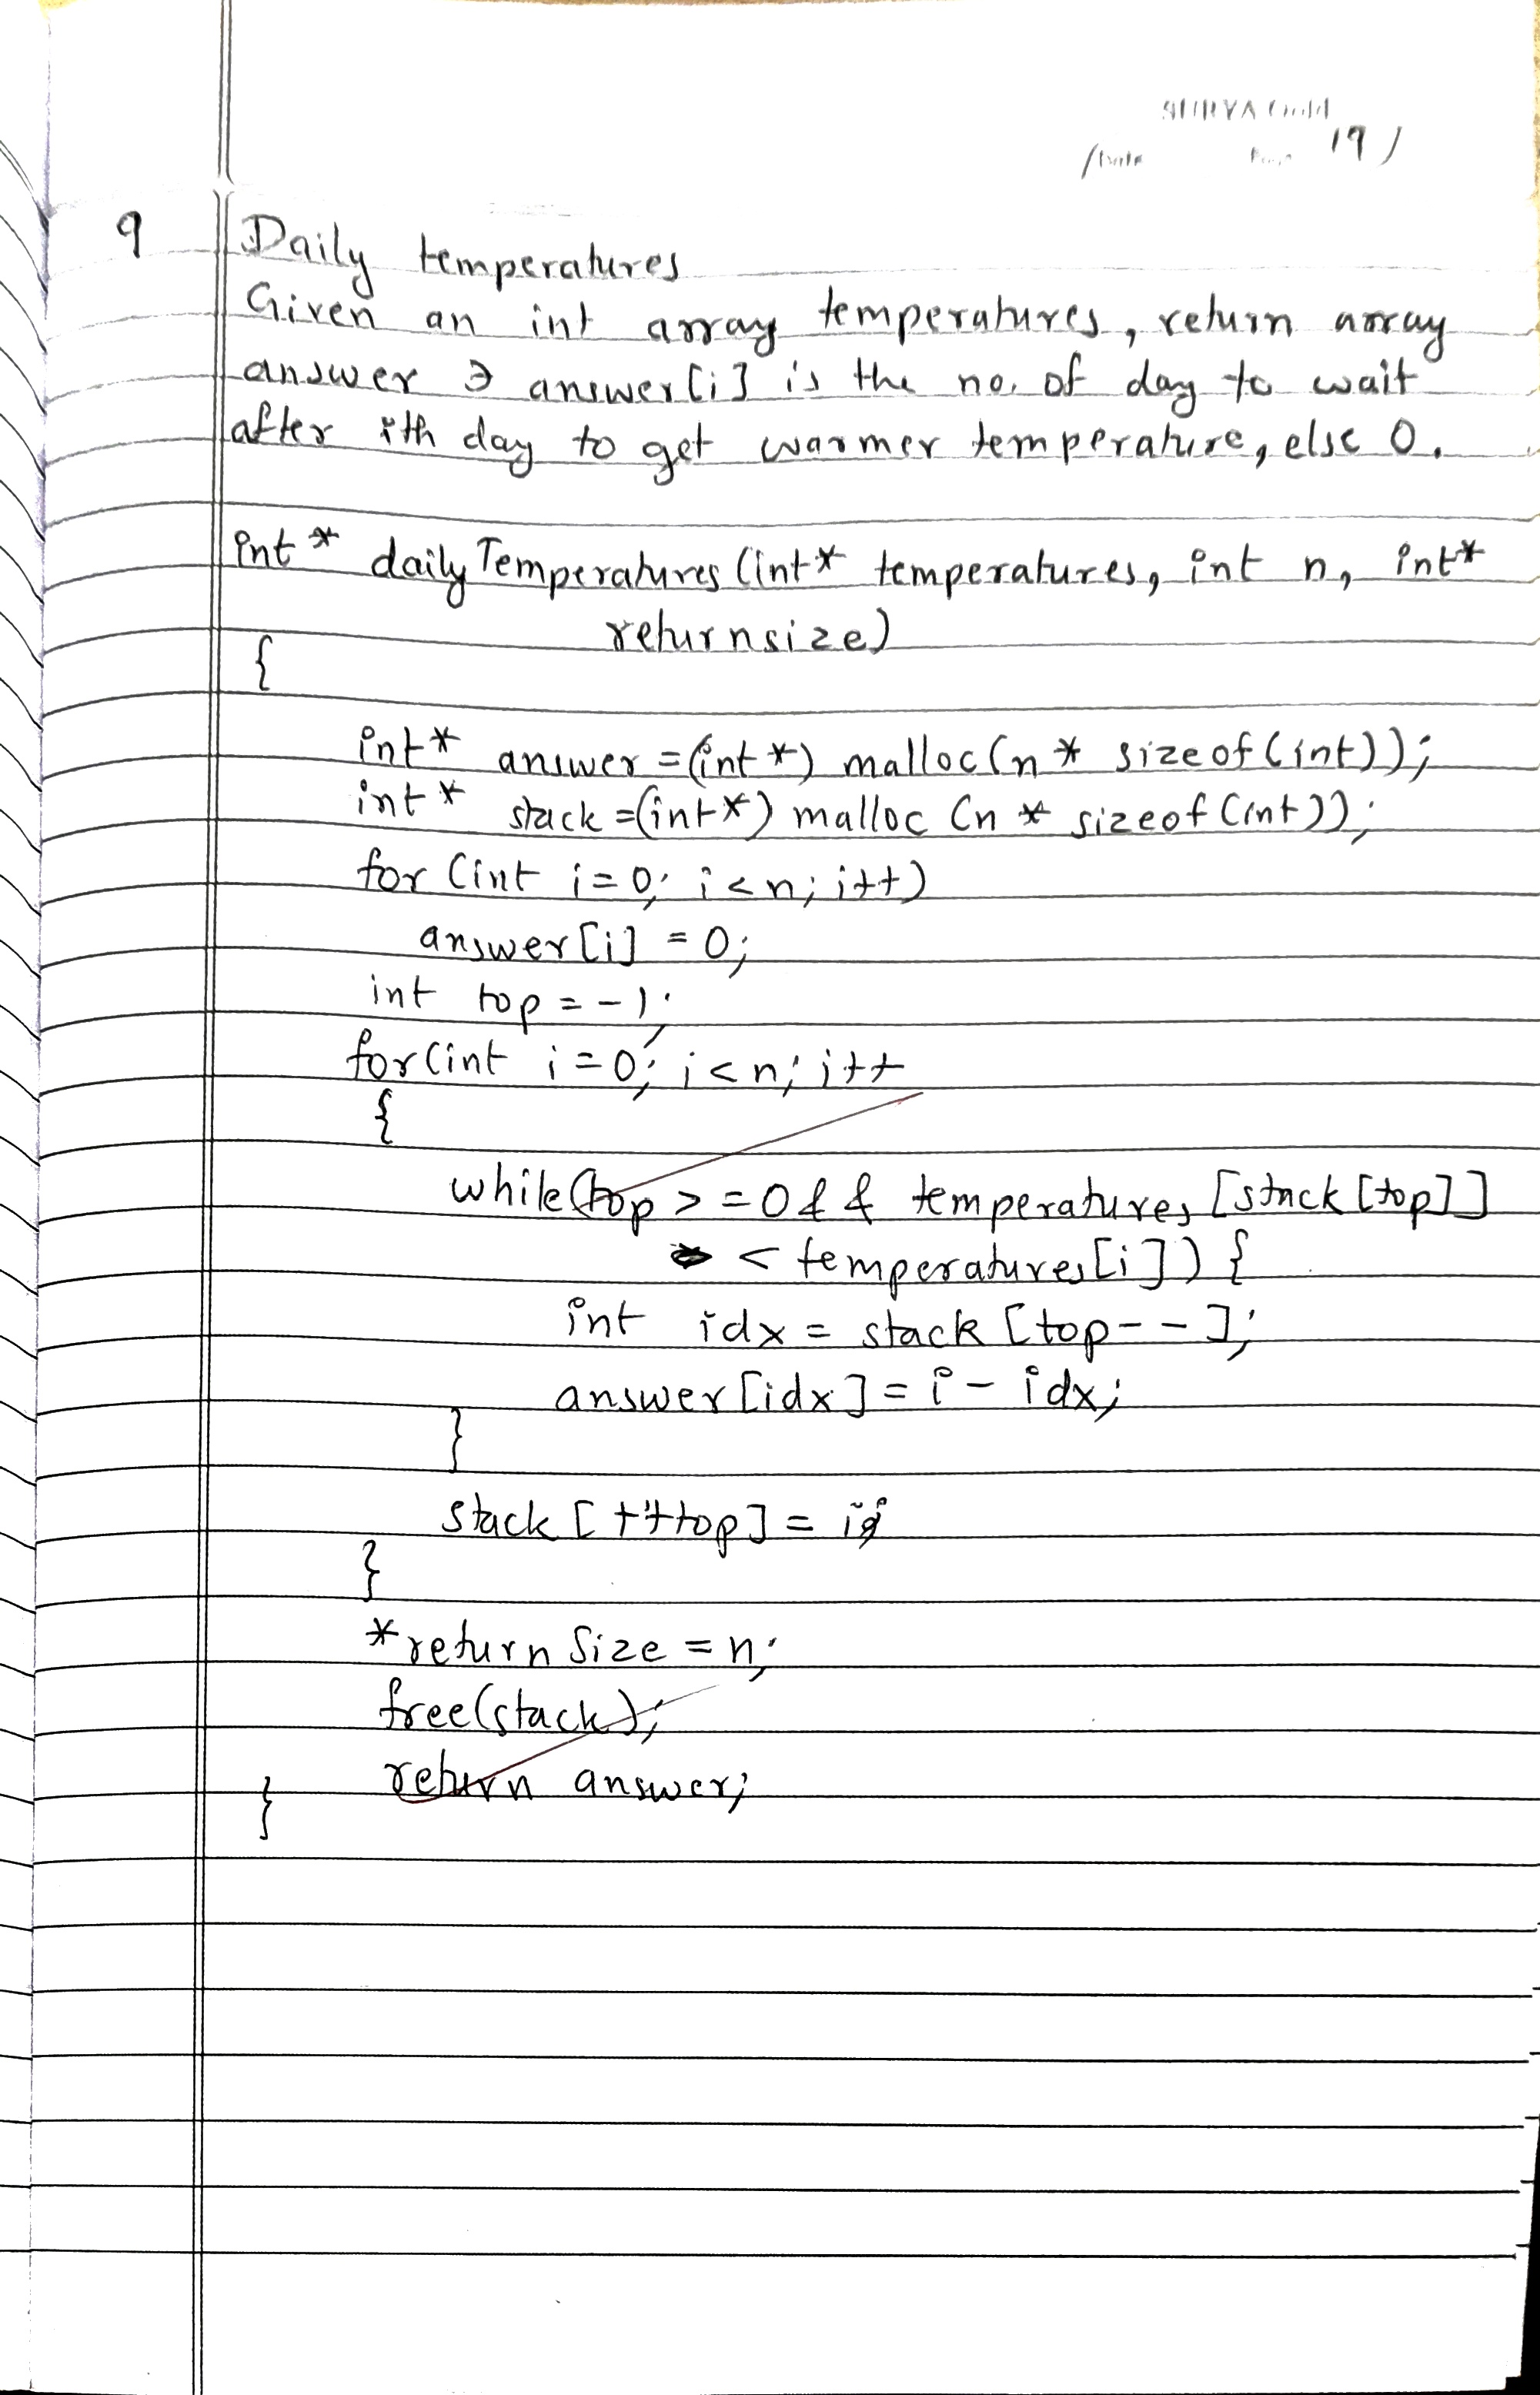 SURYA Gold
Date Page 19
9 Daily temperatures
Given an int array temperatures, return array
answer ∋ answer[i] is the no. of day to wait
after ith day to get warmer temperature, else 0.
int * dailyTemperatures (int* temperatures, int n, int*
returnsize)
{
int* answer = (int *) malloc(n * sizeof(int));
int * stack = (int*) malloc (n * sizeof(int));
for (int i=0; i<n; i++)
answer[i] = 0;
int top = -1;
for(int i=0; i<n; i++
{
while(top >=0 && temperatures[stack[top]]
< temperatures[i]) {
int idx = stack [top--];
answer[idx] = i - idx;
}
stack [++top] = i;
}
*returnSize = n;
free(stack);
return answer;
}